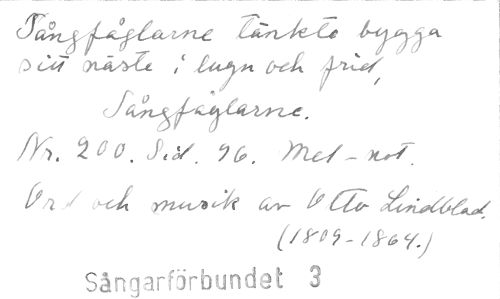 Sångfåglarne tänkte bygga
sitt näste i lugn och frid,
Sångfåglarne.
Nr. 200. Sid. 96. Mel-not.
Ord och musik av Otto Lindblad.
(1809-1864.)
Sångarförbundet 3